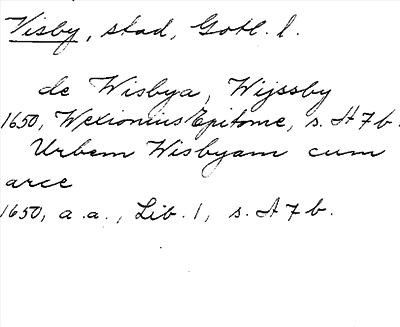 Visby, stad, Gotl. l.
de Wisbya, Wijssby
1650, Wexionius Epitome, s. H 7 b.
Urbem Wisbyam cum
arce
1650, a.a., Lib. 1, s. H 7 b.